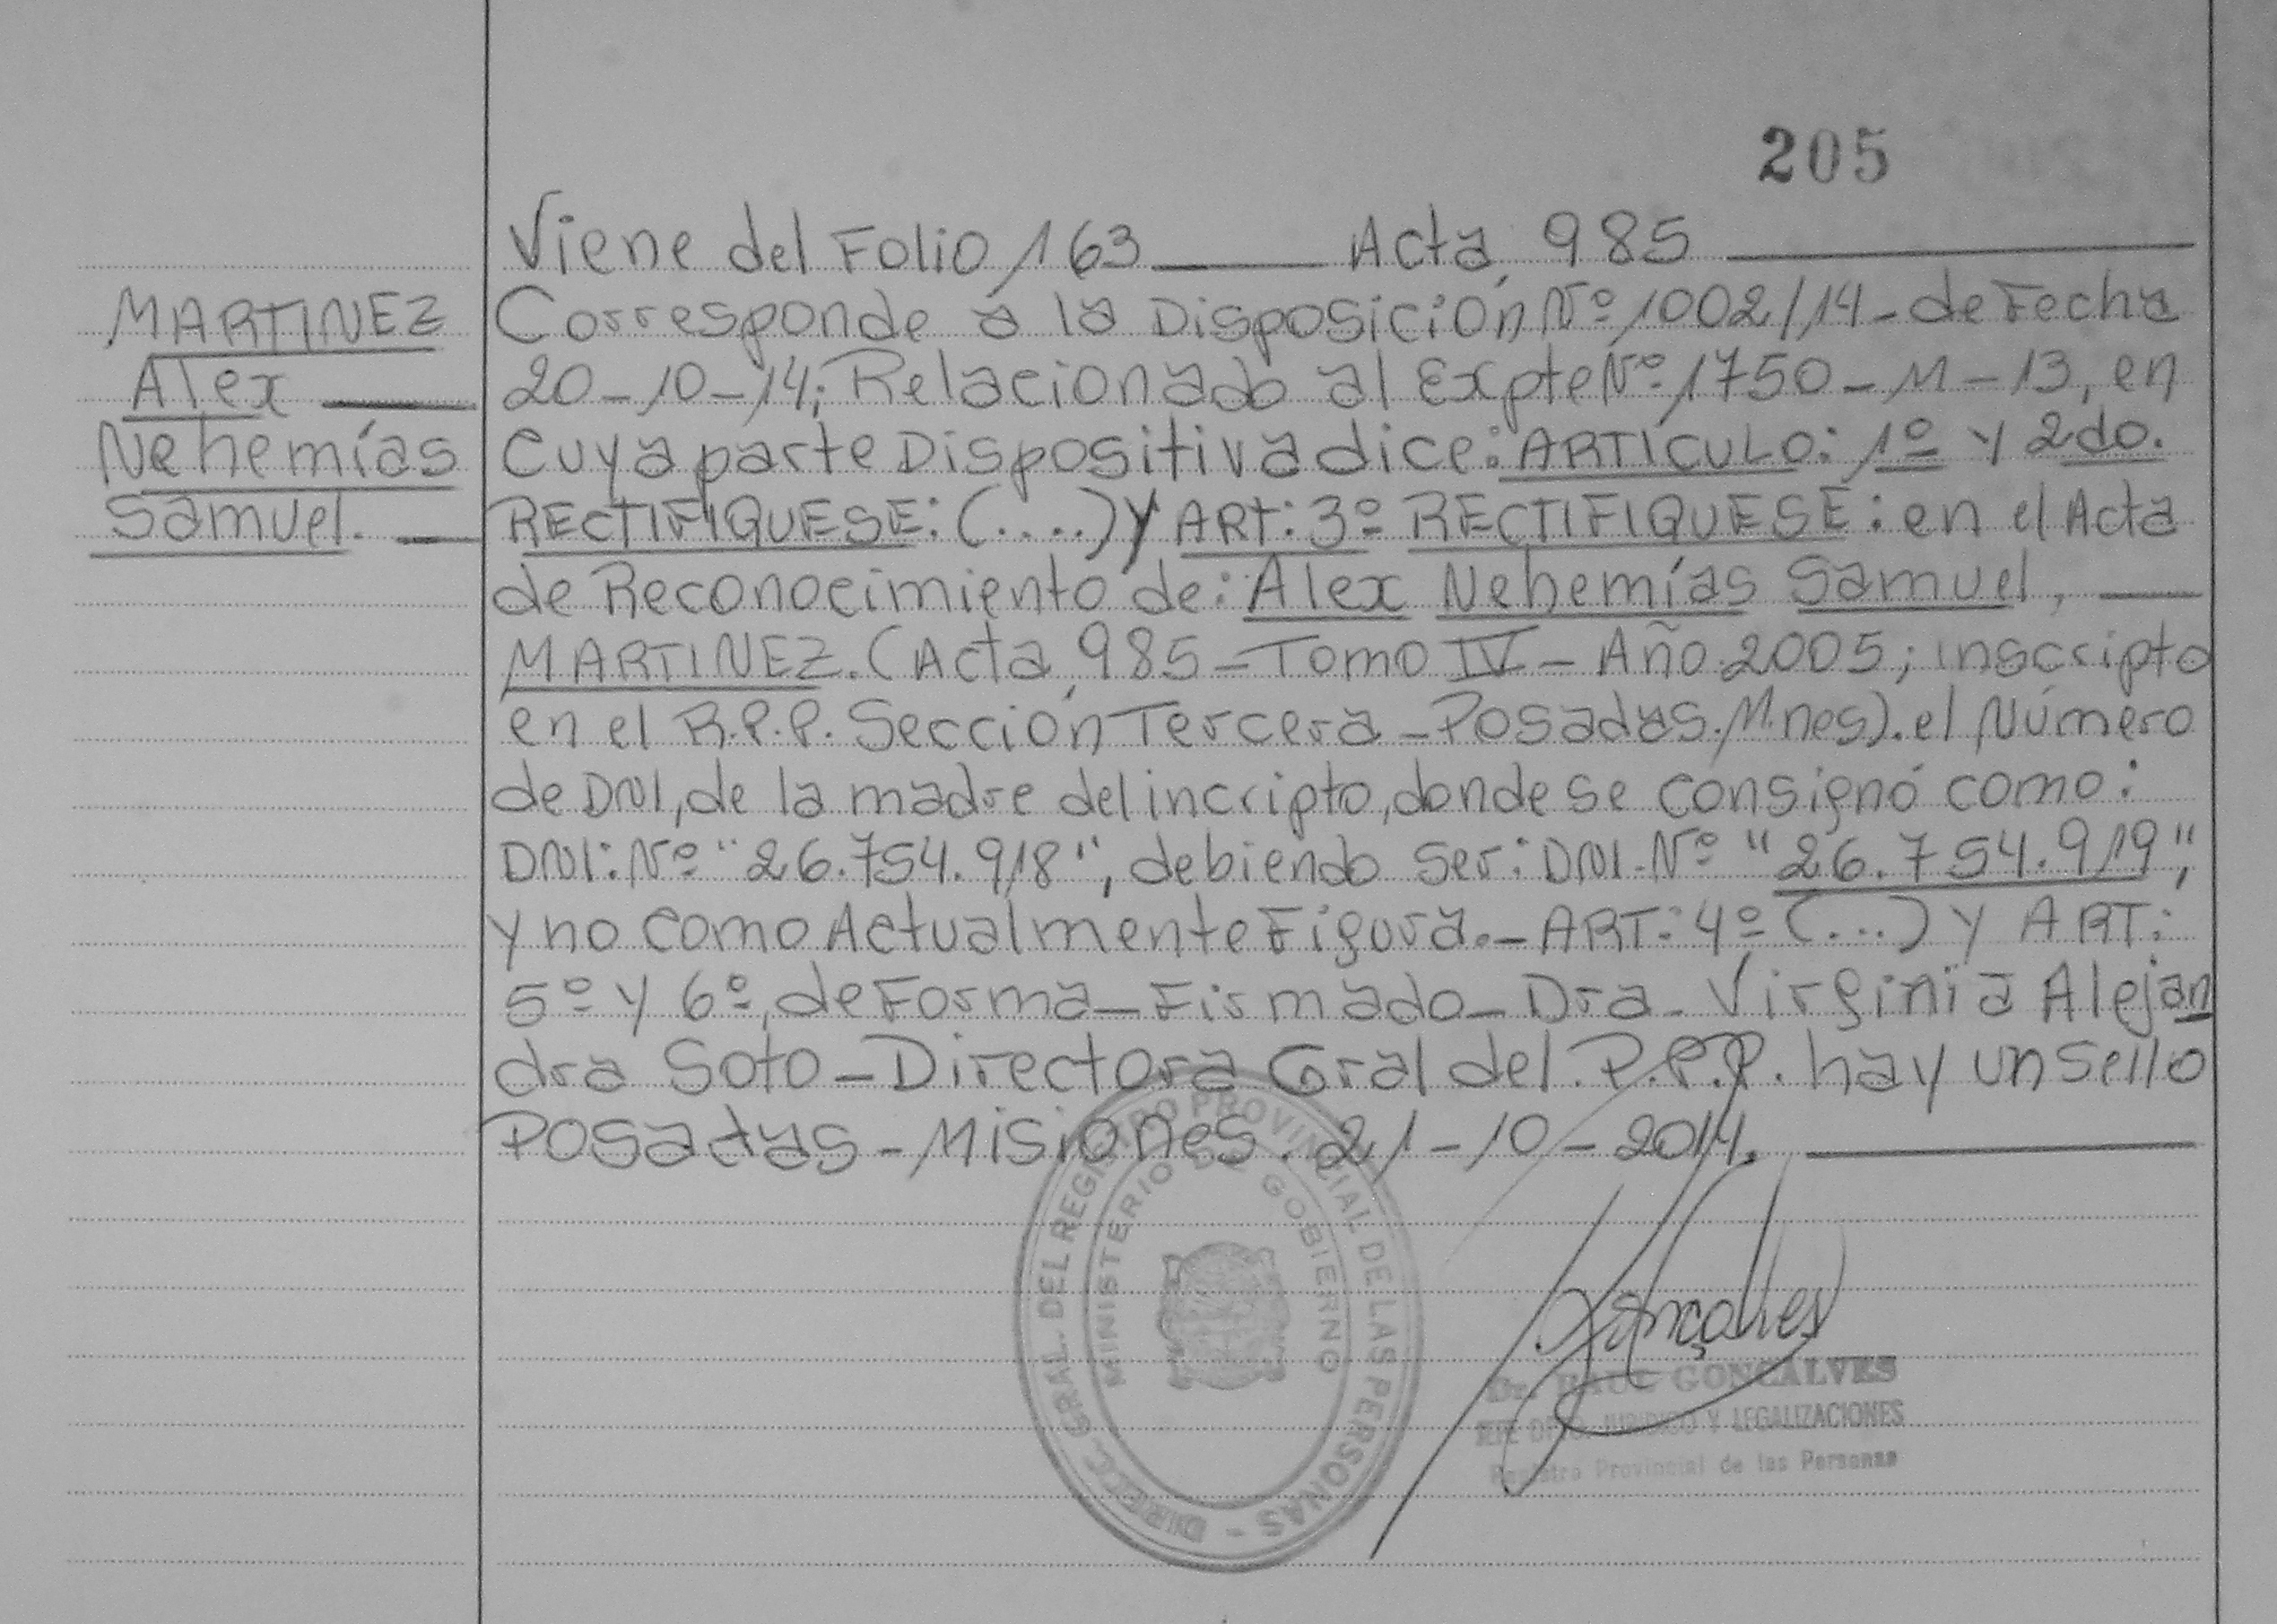 205
Viene del Folio 163 ____ Acta 985 ____
MARTINEZ
Alex ____
Nehemías
Samuel. __
Corresponde a la Disposición Nº 1002/14 - de Fecha
20-10-14; Relacionado al Expte Nº 1750 - M - 13, en
cuya parte Dispositiva dice: ARTICULO: 1º y 2do.
RECTIFIQUESE: (....) y ART: 3º RECTIFIQUESE: en el Acta
de Reconocimiento de: Alex Nehemías Samuel, __
MARTINEZ. (Acta 985 - Tomo IV - Año 2005; inscripto
en el R.P.P. Sección Tercera - Posadas. Mnes). el Número
de DNI, de la madre del incripto, donde se consignó como:
DNI: Nº "26.754.918", debiendo ser: DNI. Nº "26.754.919",
y no como Actualmente Figura. - ART: 4º (...) y ART:
5º y 6º, de Forma - Firmado - Dra. Virginia Alejan
dra Soto - Directora Gral del P.P.P. hay un sello
Posadas - Misiones. 21-10-2014. ____
DIRECC. GRAL. DEL REGISTRO PROVINCIAL DE LAS PERSONAS -
MINISTERIO DE GOBIERNO
Gonçalves
Dr. RAUL GONCALVES
JEFE DPTO. JURIDICO Y LEGALIZACIONES
Registro Provincial de las Personas